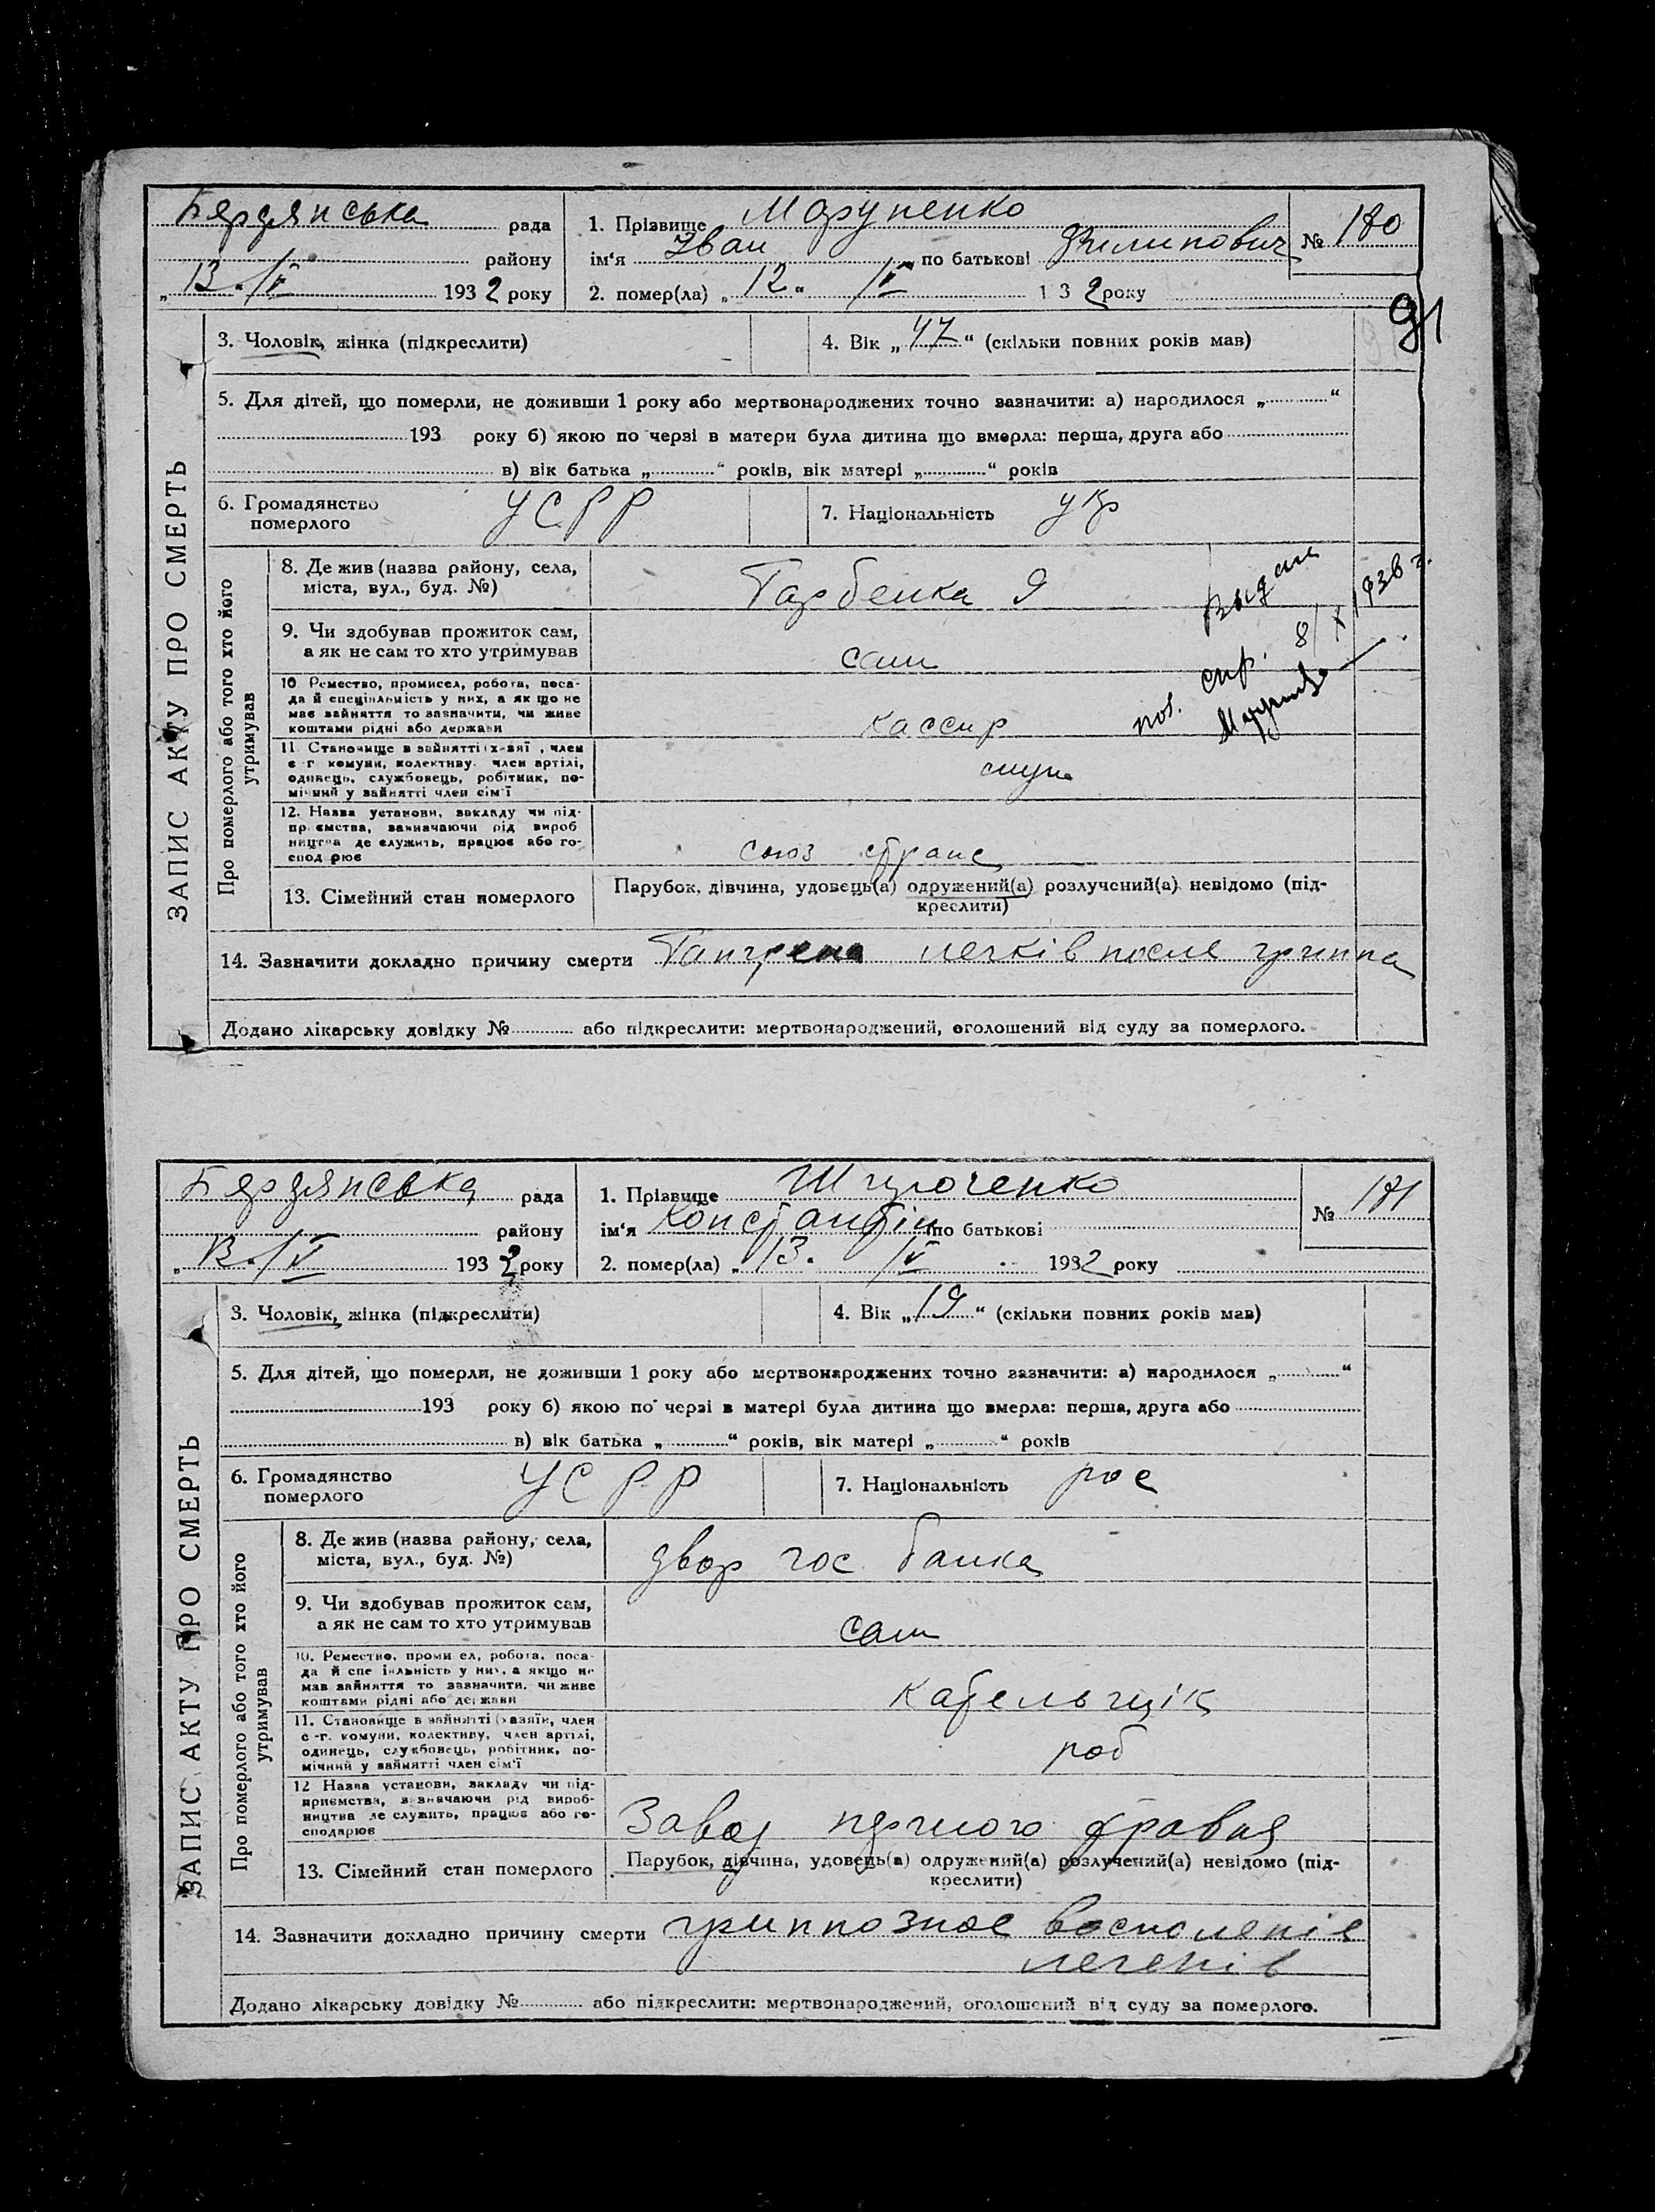 Бердянська рада
району
„ 13 " IV 1932 року
1. Прізвище
ім'я Іван по батькові Филипович
2. помер(ла) „ 12 " IV 1 3 2 року
№ 180
91
ЗАПИС АКТУ ПРО СМЕРТЬ
3. Чоловік, жінка (підкреслити)
4. Вік „ 47 " (скільки повних років мав)
5. Для дітей, що померли, не доживши 1 року або мертвонароджених точно зазначити: а) народилося „ "
193 року б) якою по черзі в матери була дитина що вмерла: перша, друга або
в) вік батька „ " років, вік матері „ " років
6. Громадянство
померлого
УСРР
7. Національність укр
Про померлого або того хто його
утримував
8. Де жив (назва району, села,
міста, вул., буд. №)
9. Чи здобував прожиток сам,
а як не сам то хто утримував
сам
10 Ремество, промисел, робота, поса-
да й спеціяльність у них, а як що не
має зайняття то зазначити, чи живе
коштами рідні або держави
кассир
11 Становище в зайнятті (х-зяї , член
с-г комуни, колективу, член артілі,
одинець, службовець, робітник, по-
мічний у зайнятті член сім'ї
12. Назва установи, закладу чи під-
пр ємства, зазначаючи рід вироб
ництва де служить, працює або го-
спод рює
союз транс
Выдана
спр. 8/X 1936 г.
13. Сімейний стан померлого
Парубок, дівчина, удовець(а) одружений(а) розлучений(а) невідомо (під-
креслити)
14. Зазначити докладно причину смерти Гангрена легків после гриппа
Додано лікарську довідку № або підкреслити: мертвонароджений, оголошений від суду за померлого.
Бердянська рада
району
„ 13 . IV 1932 року
1. Прізвище
ім'я Константін по батькові
2. помер(ла) „ 13 . IV 1932 року
№ 181
ЗАПИС АКТУ ПРО СМЕРТЬ
3. Чоловік, жінка (підкреслити)
4. Вік „ 19 " (скільки повних років мав)
5. Для дітей, що померли, не доживши 1 року або мертвонароджених точно зазначити: а) народилося „ "
193 року б) якою по черзі в матері була дитина що вмерла: перша, друга або
в) вік батька „ " років, вік матері „ " років
6. Громадянство
померлого
УСРР
7. Національність рос
Про померлого або того хто його
утримував
8. Де жив (назва району, села,
міста, вул., буд. №)
двор гос банка
9. Чи здобував прожиток сам,
а як не сам то хто утримував
сам
10. Ремество, проми ел, робота, поса-
да й спе іяльність у них, а якщо не
мав зайняття то зазначити, чи живе
коштами рідні або держави
кабельщік
11. Становище в зайнятті (хазяїн, член
с-г. комуни, колективу, член артілі,
одинець, службовець, робітник, по-
мічний у зайнятті член сім'ї
роб
12 Назва установи, закладу чи під-
приємства, зазначаючи рід вироб-
ництва де служить, працює або го-
сподарює
Завод
13. Сімейний стан померлого
Парубок, дівчина, удовець(а) одружений(а) розлучений(а) невідомо (під-
креслити)
14. Зазначити докладно причину смерти гриппозное восполеніе
легенів
Додано лікарську довідку № або підкреслити: мертвонароджений, оголошений від суду за померлого.